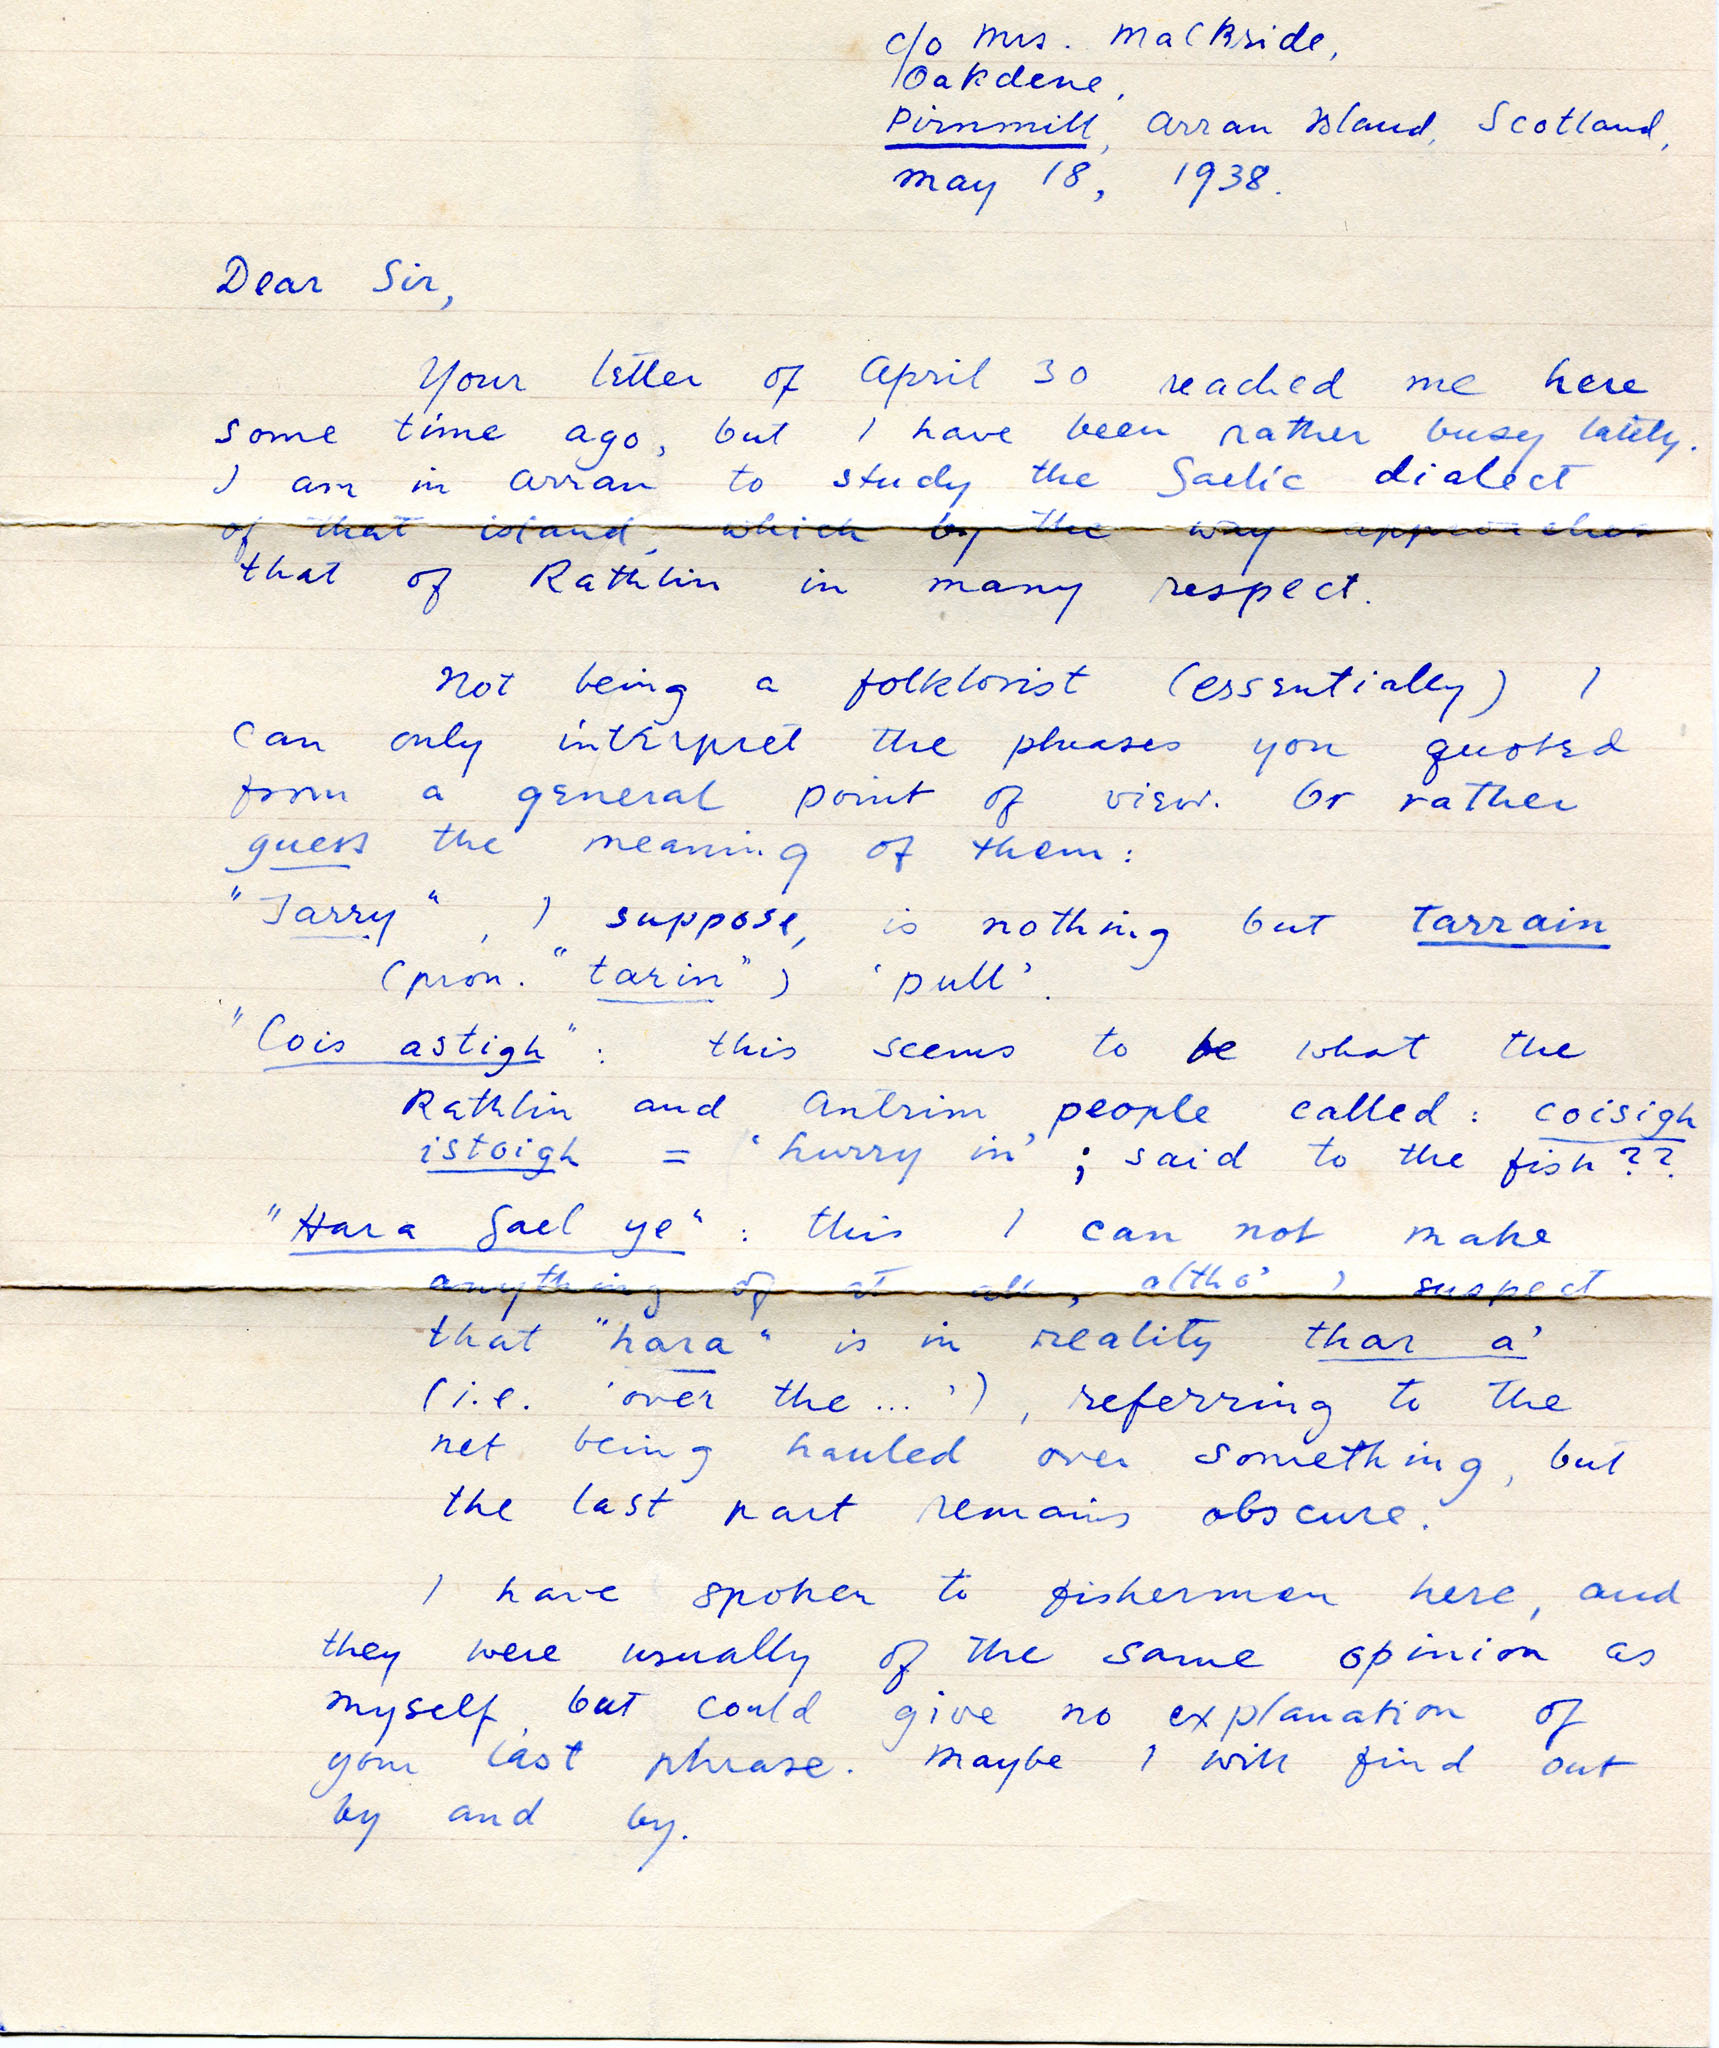 c/o Mrs. MacBride,
Oakdene,
Pirnmill, Arran Island, Scotland,
May 18, 1938.
Dear Sir,
Your letter of April 30 reached me here
some time ago, but I have been rather busy lately.
I am in Arran to study the Gaelic dialect
of that island, which by the way approaches
that of Rathlin in many respect.
Not being a folklorist (essentially) I
can only interpret the phrases you quoted
from a general point of view. Or rather
guess the meaning of them:
"Tarry", I suppose, is nothing but tarrain
(pron. "tarin") 'pull'.
"Cois astigh": this seems to be what the
Rathlin and Antrim people called: coisigh
istoigh = 'hurry in'; said to the fish??
"Hara Gael ye": this I can not make
anything of at all, altho' I suspect
that "hara" is in reality thar a'
(i.e. 'over the...'), referring to the
net being hauled over something, but
the last part remains obscure.
I have spoken to fishermen here, and
they were usually of the same opinion as
myself, but could give no explanation of
your last phrase. Maybe I will find out
by and by.